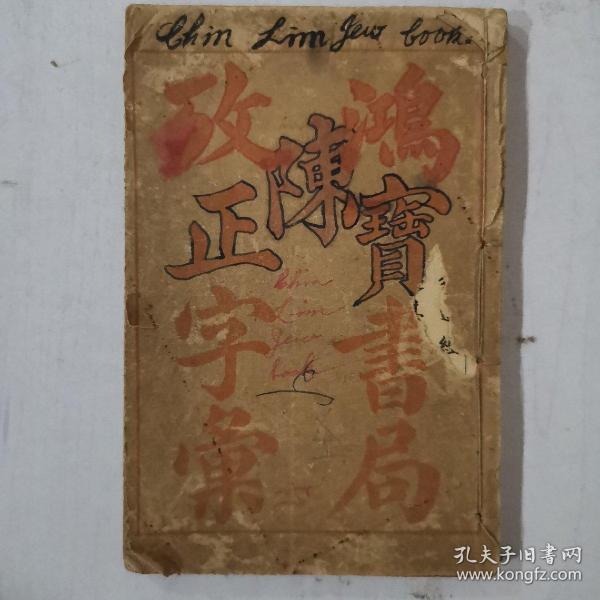 Chin Lim Jew book.
鴻寶書局
陳
攷正字彙
Chin
Lim
Jew
book
孔夫子旧书网
www.kongfz.com